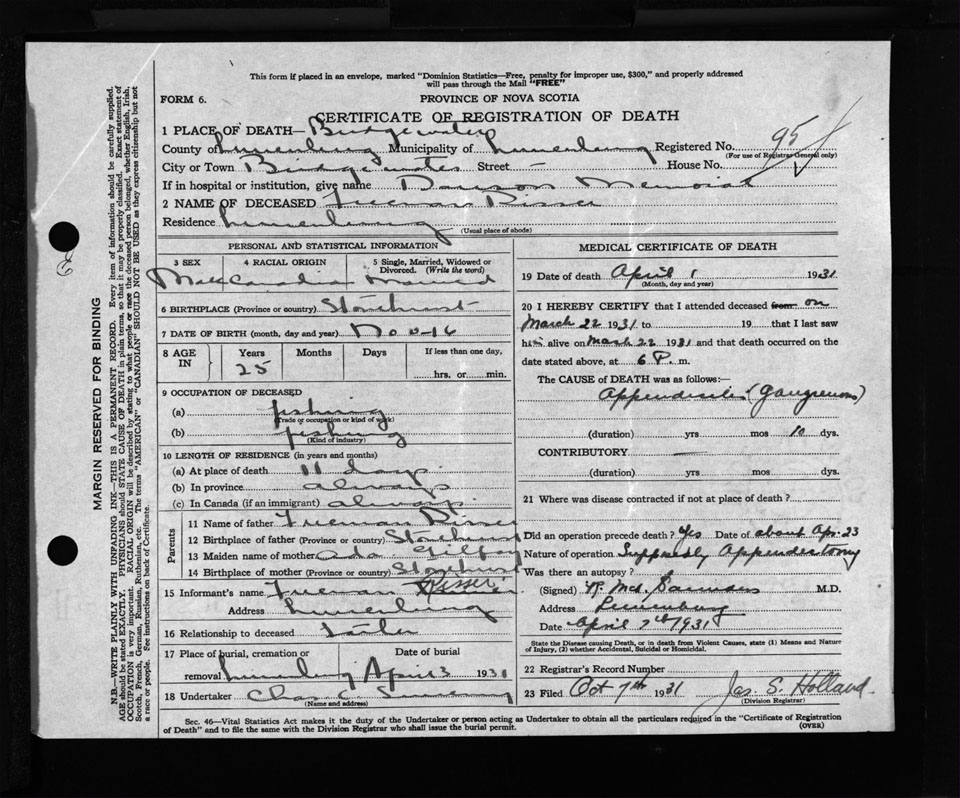 This form if placed in an envelope, marked "Dominion Statistics—Free, penalty for improper use, $300," and properly addressed
will pass through the Mail "FREE"
FORM 6.
PROVINCE OF NOVA SCOTIA
CERTIFICATE OF REGISTRATION OF DEATH
1 PLACE OF DEATH— Bridgewater
County of Lunenburg Municipality of Lunenburg Registered No. 95
(For use of Registrar General only)
City or Town Bridgewater Street — House No.
If in hospital or institution, give name Dawson Memorial
2 NAME OF DECEASED Freeman Risser
Residence Lunenburg
(Usual place of abode)
PERSONAL AND STATISTICAL INFORMATION
3 SEX 4 RACIAL ORIGIN 5 Single, Married, Widowed or Divorced. (Write the word)
Male Canadian Married
6 BIRTHPLACE (Province or country) Stonehurst
7 DATE OF BIRTH (month, day and year)
8 AGE IN Years Months Days If less than one day,
25 hrs. or min.
9 OCCUPATION OF DECEASED
(a) fishing
(Trade or occupation or kind of work)
(b) fishing
(Kind of industry)
10 LENGTH OF RESIDENCE (in years and months)
(a) At place of death 11 days
(b) In province always
(c) In Canada (if an immigrant) always
Parents
11 Name of father Freeman Risser
12 Birthplace of father (Province or country) Stonehurst
13 Maiden name of mother Ada
14 Birthplace of mother (Province or country) Stonehurst
15 Informant's name Freeman Risser
Address Lunenburg
16 Relationship to deceased Father
17 Place of burial, cremation or Date of burial
removal Lunenburg April 3 1931
18 Undertaker Chas
(Name and address)
MEDICAL CERTIFICATE OF DEATH
19 Date of death April 1 1931
(Month, day and year)
20 I HEREBY CERTIFY that I attended deceased from on
March 22 1931 to 19 that I last saw
him alive on March 22 1931 and that death occurred on the
date stated above, at 6 P. m.
The CAUSE OF DEATH was as follows:—
Appendicitis (Gangrenous)
(duration) yrs mos 10 dys.
CONTRIBUTORY —
(duration) yrs mos dys.
21 Where was disease contracted if not at place of death?
Did an operation precede death? Yes Date of about Apr. 23
Nature of operation Supposedly Appendectomy
Was there an autopsy?
(Signed) M.D.
Address Lunenburg
Date April 7th 1931
State the Disease causing Death, or in death from Violent Causes, state (1) Means and Nature
of Injury, (2) whether Accidental, Suicidal or Homicidal.
22 Registrar's Record Number
23 Filed Oct 7th 1931 Jas. S. Holland
(Division Registrar)
Sec. 46—Vital Statistics Act makes it the duty of the Undertaker or person acting as Undertaker to obtain all the particulars required in the "Certificate of Registration
of Death" and to file the same with the Division Registrar who shall issue the burial permit.
(OVER)
MARGIN RESERVED FOR BINDING
N.B.—WRITE PLAINLY WITH UNFADING INK—THIS IS A PERMANENT RECORD. Every item of information should be carefully supplied.
AGE should be stated EXACTLY. PHYSICIANS should STATE CAUSE OF DEATH in plain terms, so that it may be properly classified. Exact statement of
OCCUPATION is very important. RACIAL ORIGIN will be described by stating to what people or race the deceased person belonged, whether English, Irish,
Scotch, French, German, Russian, Ruthenian, etc. The terms "AMERICAN" or "CANADIAN" SHOULD NOT BE USED as they express citizenship but not
a race or people. See instructions on back of Certificate.